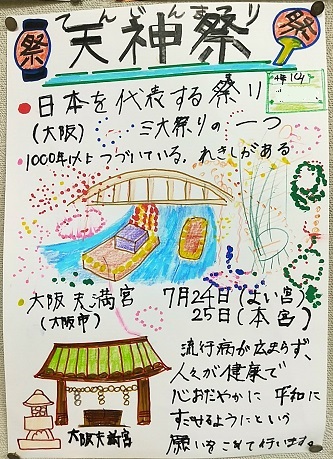 てんじんまつり
祭 天神祭 祭
4年1組
日本を代表する祭り
(大阪) 三大祭りの一つ
1000年以上つづいている。れきしがある
大阪天満宮 7月24日(よい宮)
(大阪市) 25日(本宮)
流行病が広まらず、
人々が健康で
心おだやかに 平和に
すごせるようにという
願いをこめて行います。
大阪天満宮